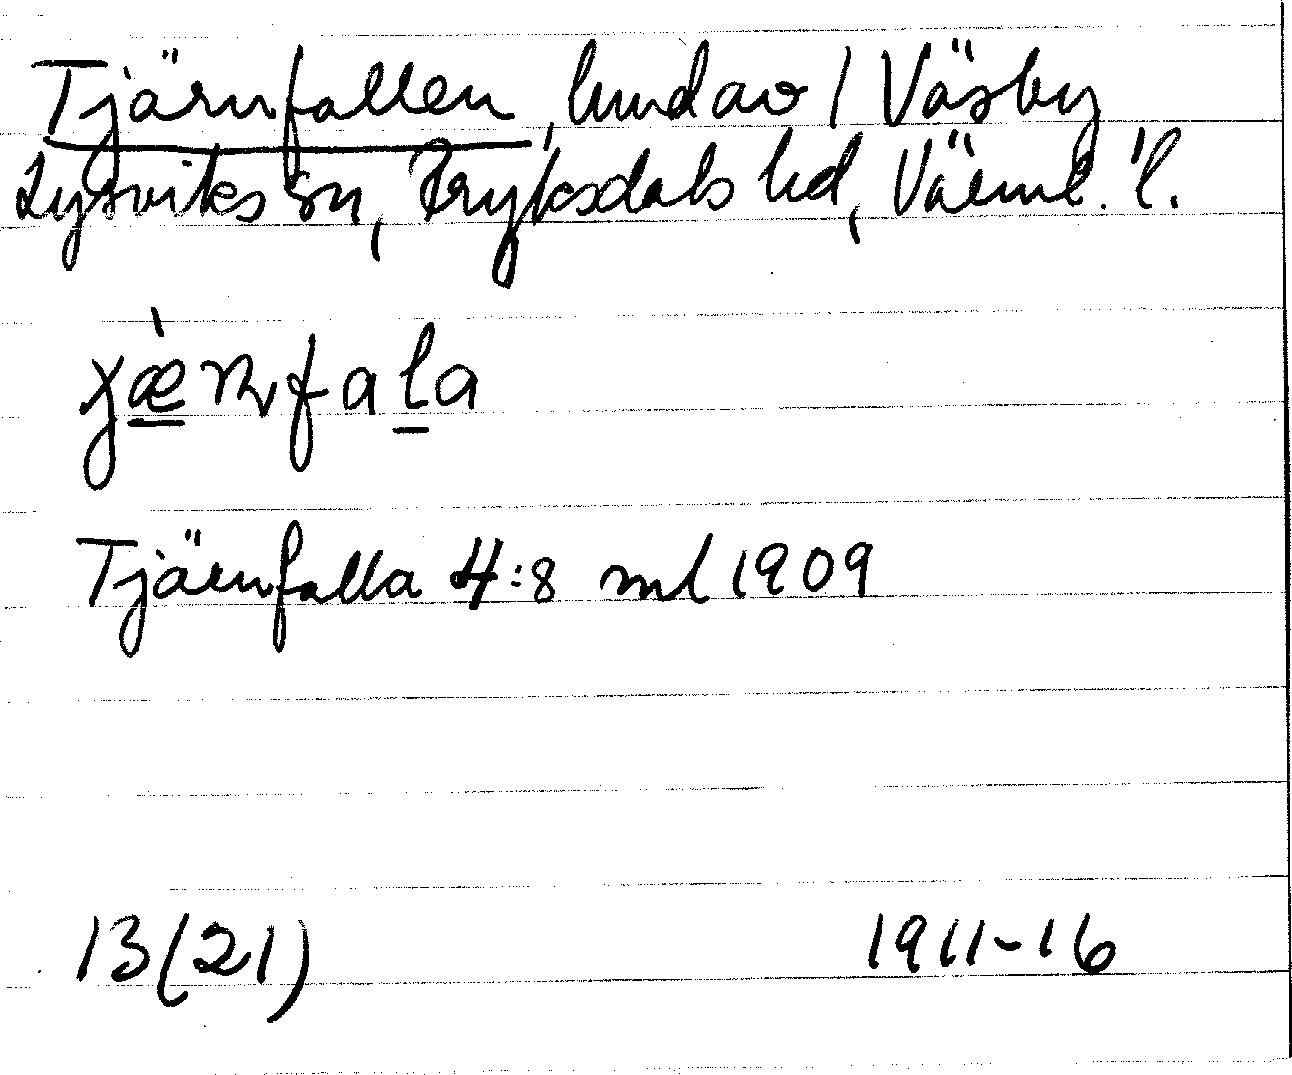 Tjärnfallen, lmdav / Väsby
Lysviks sn, Fryksdals hd, Värml. l.
Tjärnfalla 4:8 ml 1909
13(21) 1911-16